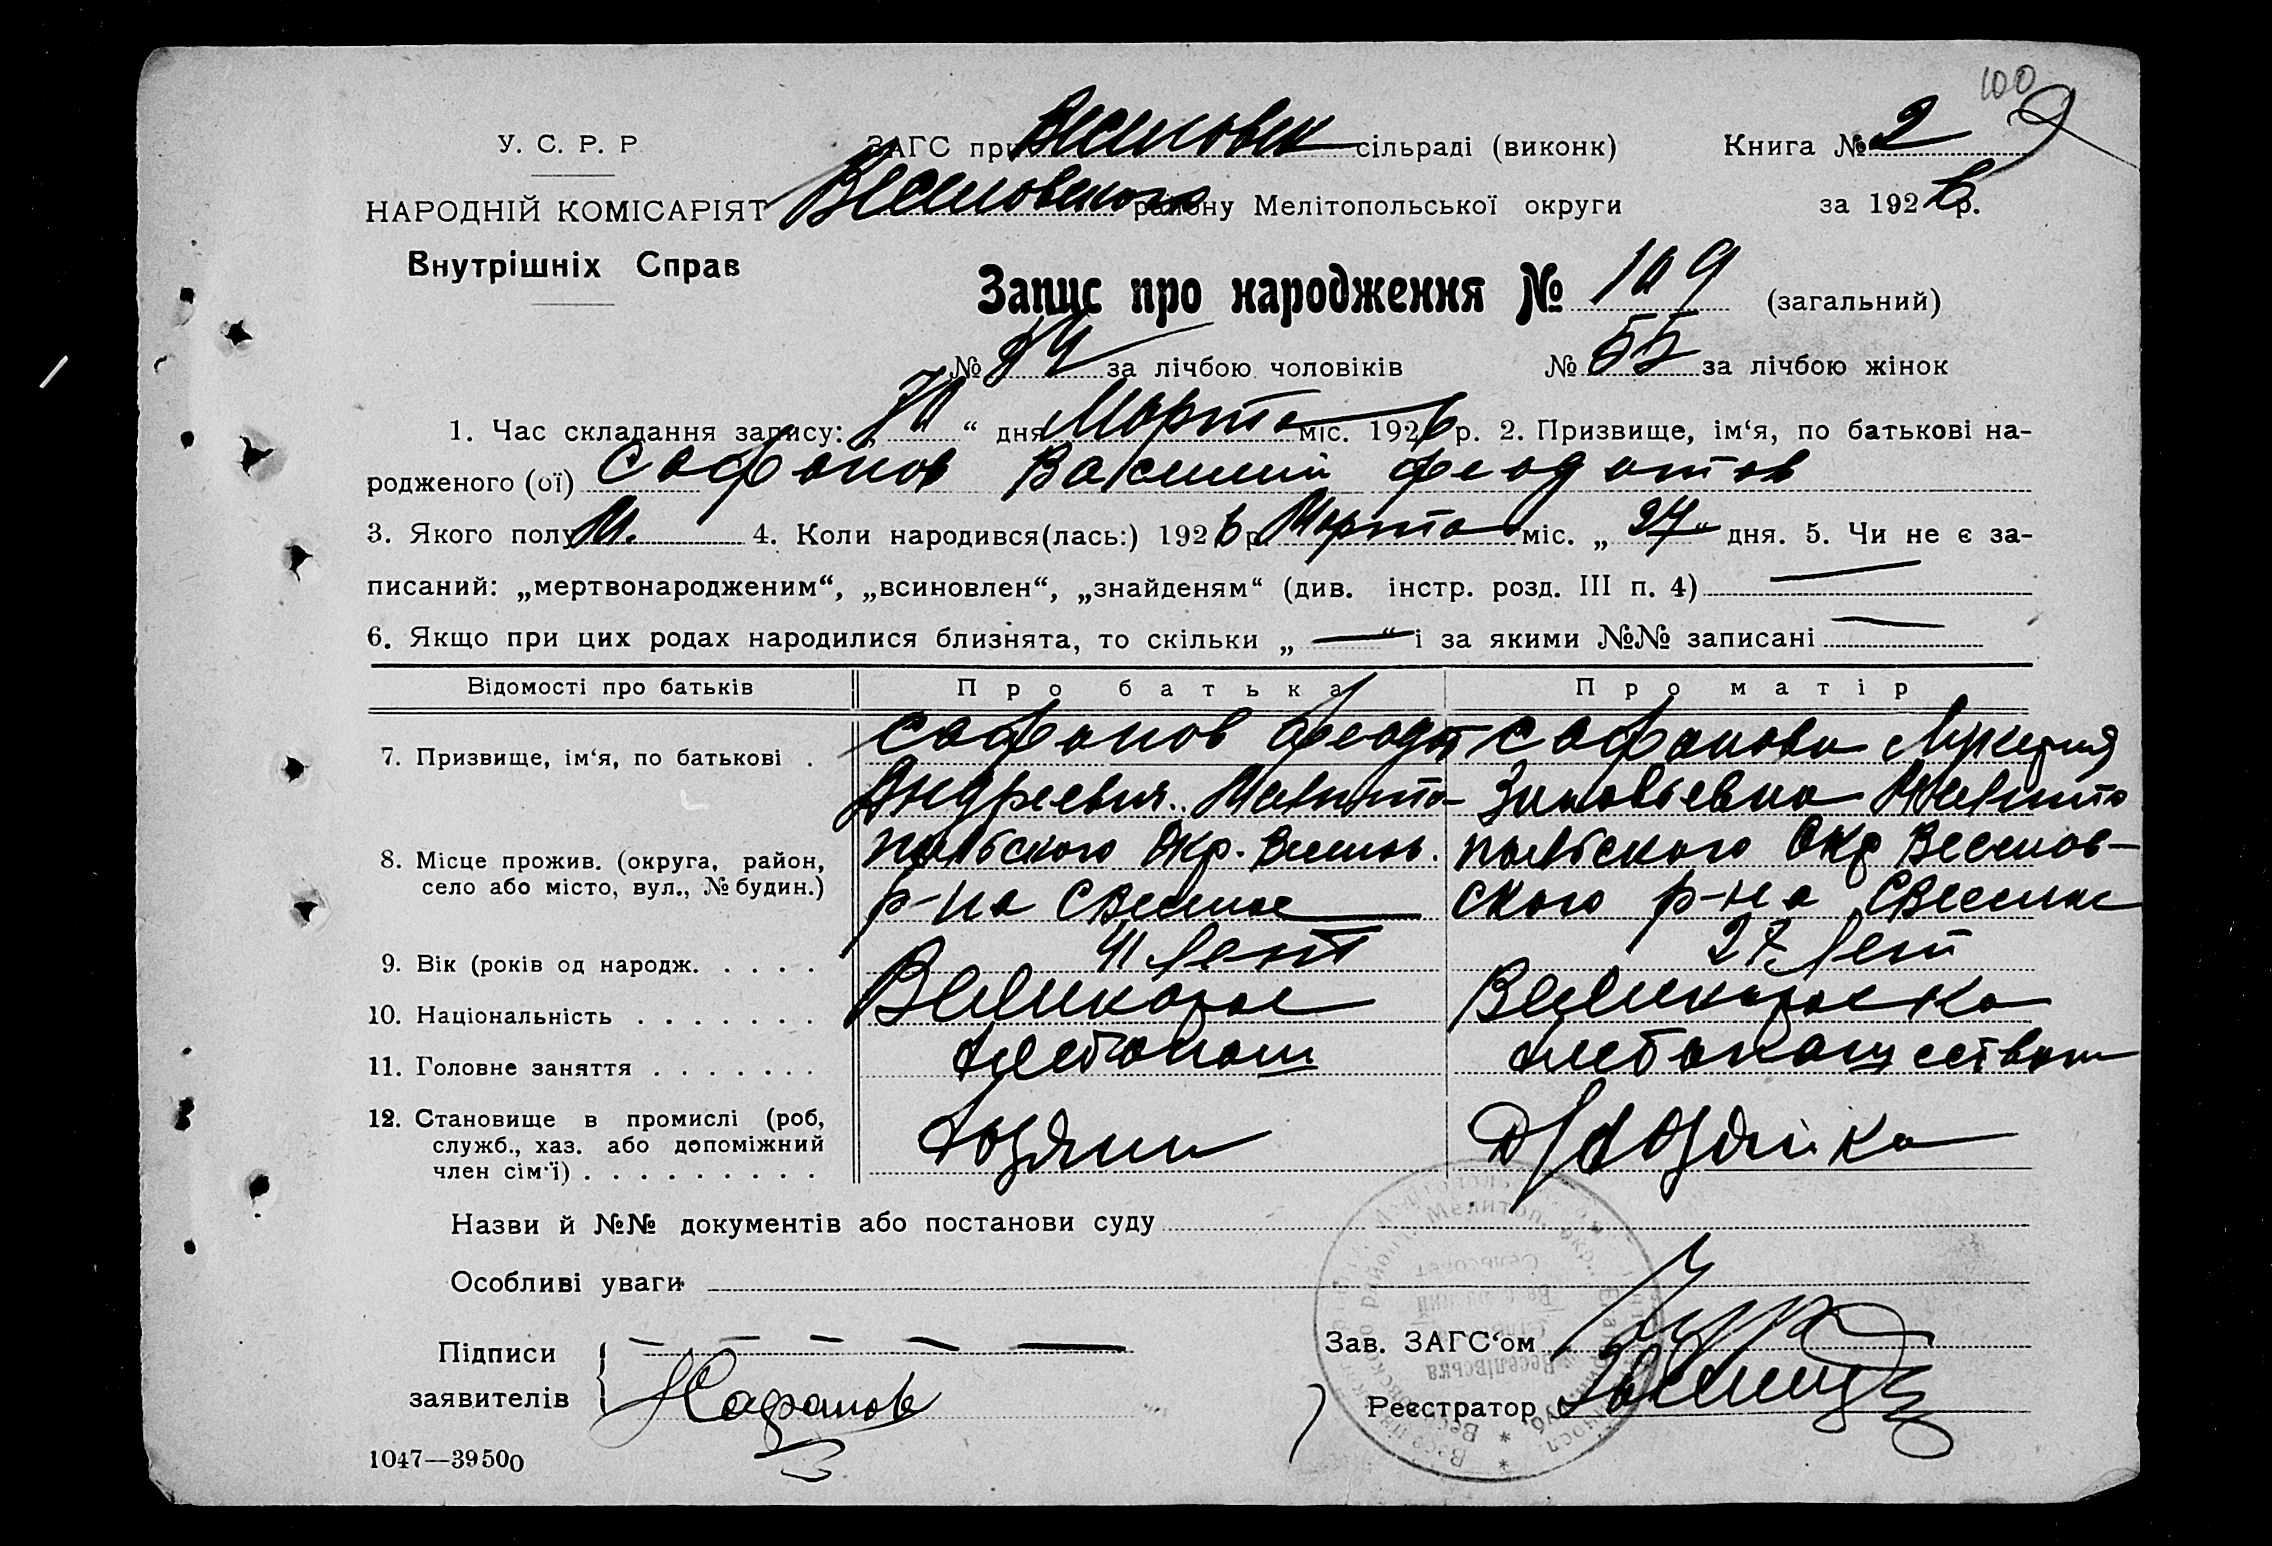 100
У. С. Р. Р
ЗАГС при Веселовск сільраді (виконк)
Книга № 2
НАРОДНІЙ КОМІСАРІЯТ
Веселовского району Мелітопольської округи
за 1926 р.
Внутрішніх Справ
Запис про народження № 109 (загальний)
№ 54 за лічбою чоловіків № 55 за лічбою жінок
1. Час складання запису: „30“ дня Марта міс. 1926 р. 2. Призвище, ім‘я, по батькові на-
родженого (ої) Сафонов Василий Феодотов
3. Якого полу М. 4. Коли народився(лась:) 1926 р. Марта міс. „27“ дня. 5. Чи не є за-
писаний: „мертвонародженим“, „всиновлен“, „знайденям“ (див. інстр. розд. III п. 4) —
6. Якщо при цих родах народилися близнята, то скільки „ — “ і за якими №№ записані —
Відомості про батьків
Про батька
Про матір
7. Призвище, ім‘я, по батькові .
Сафонов Феодот
Андреевич. Мелито-
Сафонова Лукерия
Зиновьевна Мелито
8. Місце прожив. (округа, район,
село або місто, вул., № будин.)
польского Окр. Веселов.
р-на С Веселое
польского Окр Веселов-
ского р-на С Веселое
9. Вік (років од народж. . . . .
41 лет
27 лет
10. Національність . . . . . . .
Великорос
Великороска
11. Головне заняття . . . . . . .
хлебопаш
хлебопашеством
12. Становище в промислі (роб,
служб., хаз. або допоміжний
член сім‘ї) . . . . . . . . .
хозяин
Д/хозяйка
Назви й №№ документів або постанови суду
Особливі уваги
Підписи
заявителів
Сафонов
Зав. ЗАГС‘ом
Реєстратор
1047—39500